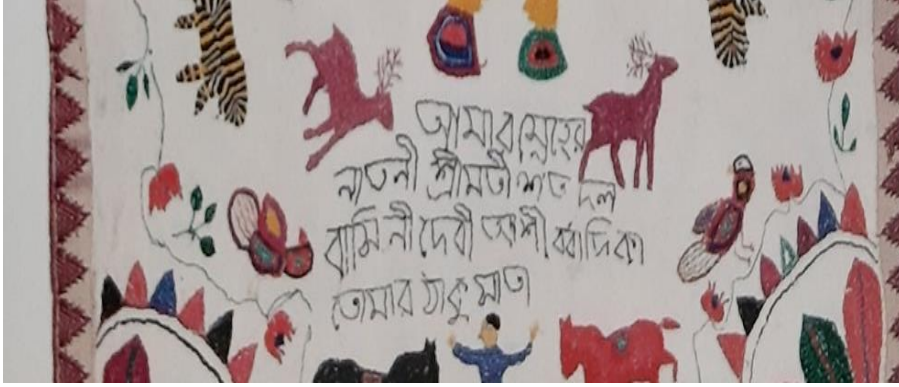 আমার স্নেহের
নাতনী শ্রীমতী শত দল
বাসিনী দেবী আশীর্ব্বাদিকা
তোমার ঠাকুমাতা